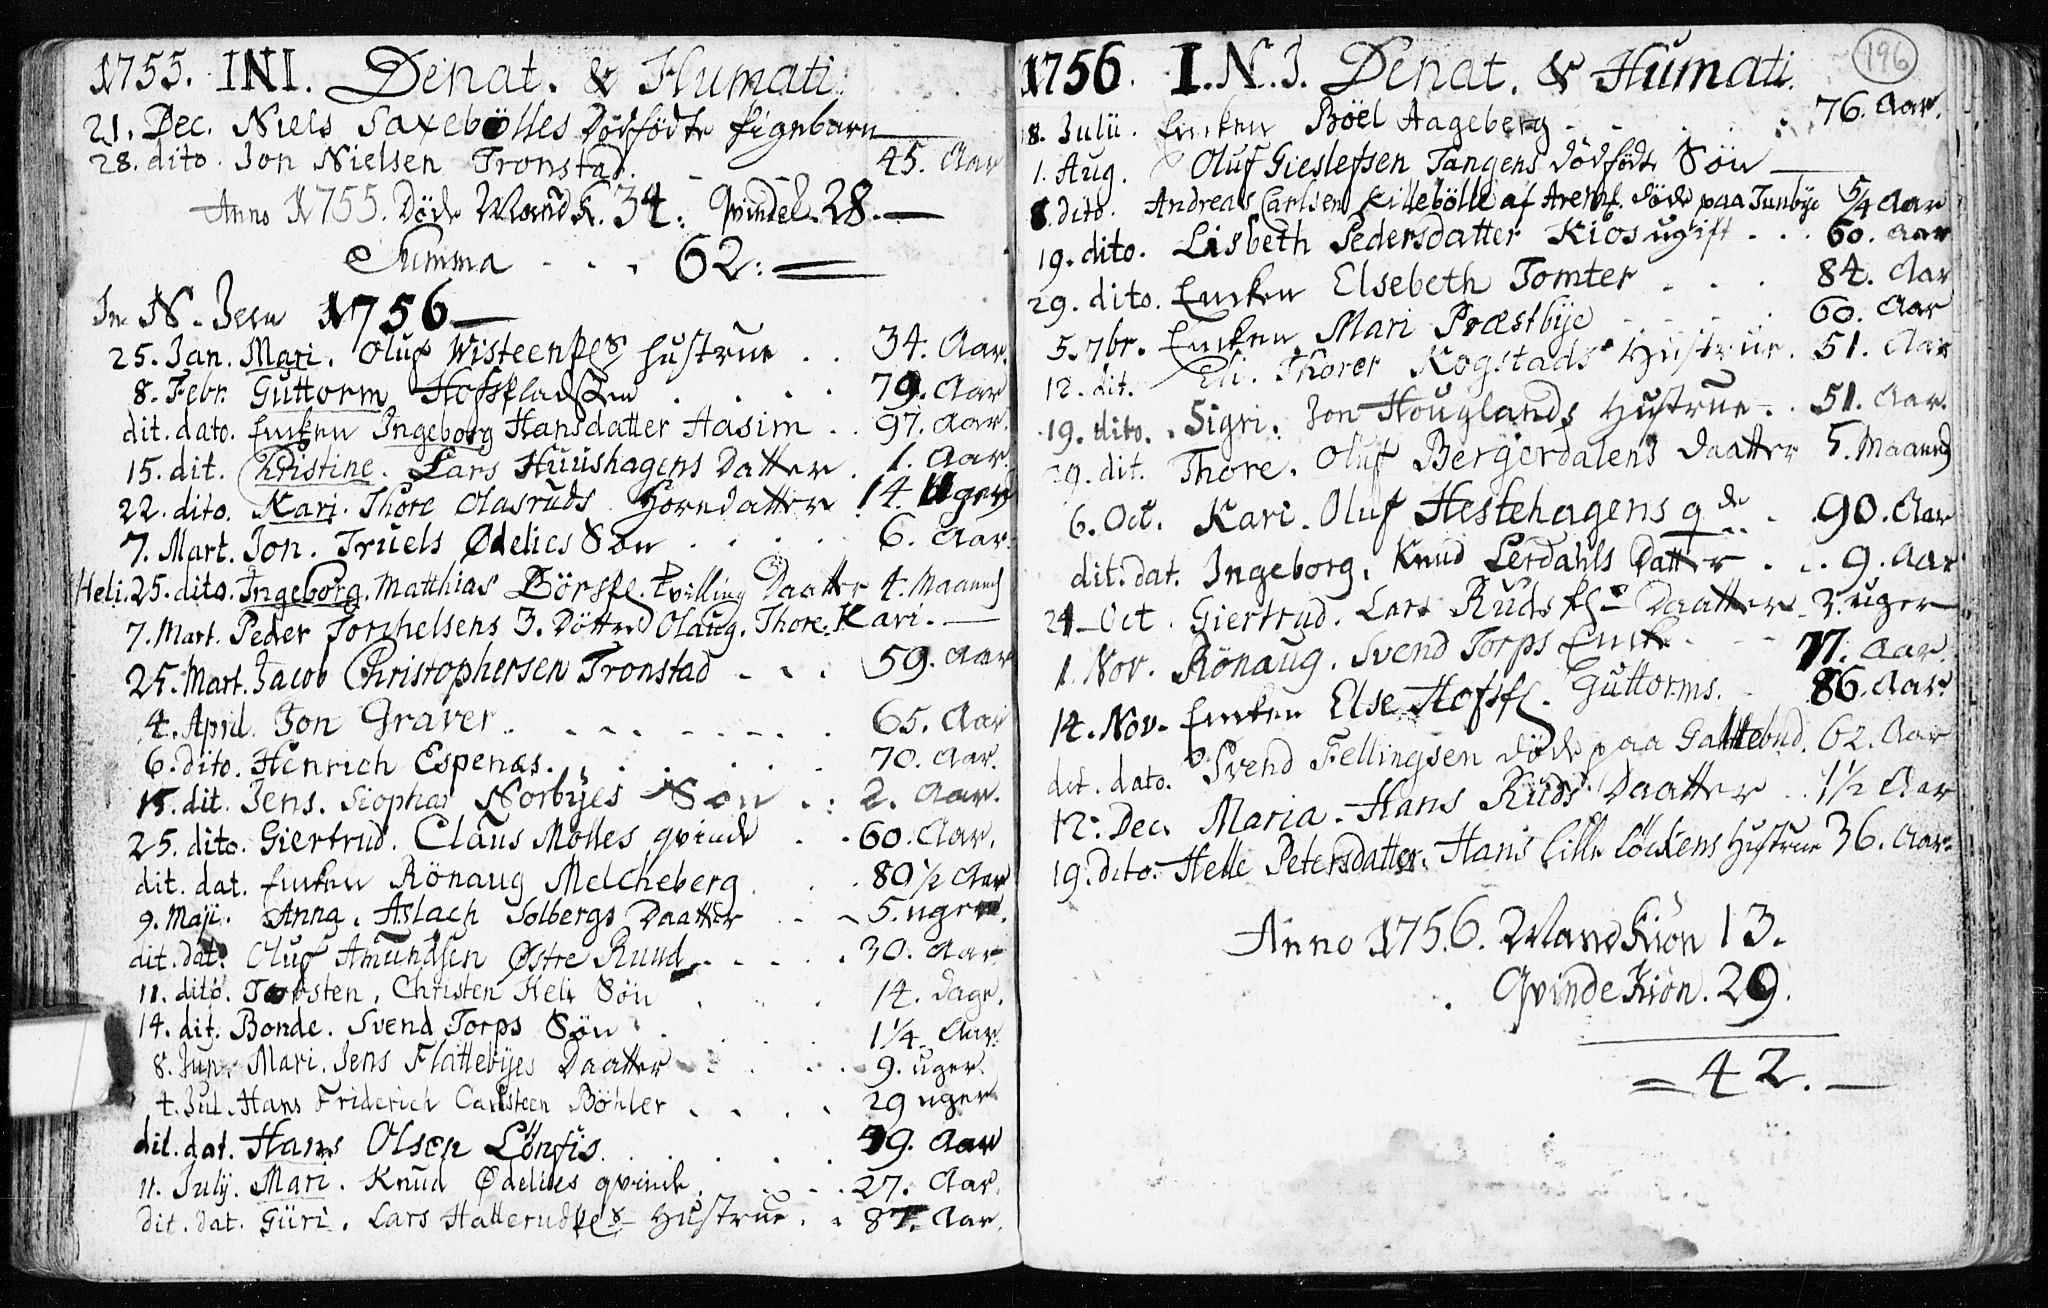 1755. INI. Denat. & Humati.
21. Dec. Niels Saxebölles Dödfödte Pigebarn
28. dito. Jon Nielsen Tronstad. - - 45. Aar
Anno 1755. Döde Mand K. 34. Qvindek. 28.
Summa - - - 62.
In N. Jesu 1756
25. Jan. Mari. Oluf Wisteenpes Hustrue . . 34. Aar.
8. Febr. Guttorm Hofspladsen . . . . 79. Aar
dit. dato. Enken Ingeborg Hansdatter Aasim . . 97. Aar.
15. dit. Christine. Lars Huushagens Datter . 1. Aar
22. dito. Kari. Thore Olasruds Horedatter . 14. Uger
7. Mart. Jon. Truels Ødelies Søn . . . . 6. Aar.
Heli. 25. dito. Ingeborg. Matthias Börske. tvilling Daatter 4. Maaned
7. Mart. Peder Torchelsens 3. Döttre Olaug. Thore. Kari.
25. Mart. Jacob Christophersen Tronstad - . . 59. Aar
4. April. Jon Graver . . . . . . . 65. Aar
6. dito. Henrich Espenæs. . . . . . 70. Aar.
15. dit. Jens. Siophar Norbyes Søn . : 2. Aar.
25. dito. Giertrud. Claus Molles qvinde . . 60. Aar.
dit. dat. Enken Rönaug Melcheberg . . . 80 1/2 Aar
9. Maji. Anna. Aslach Solbergs Daatter . . 5. uger.
dit. dat. Oluf Amundsen Østre Ruud . . . . . 30. Aar
11. dito. Torsten. Christen Heli Sön . . . 14. Dage.
14. dit. Bonde. Svend Torps Sön . . . . 1 1/4. Aar.
8. Jun. Mari. Jens Flattebyes Daatter . . . . 9. uger.
4. Jul. Hans Friderich Carlsteen Böhler . . . . 29 uger
dit. dat. Hans Olsen Lönfis . . . . . 49. Aar
11. July. Mari. Knud Ødelies qvinde . . . . 27. Aar.
dit. dat. Güri. Lars Hallerudpes Hustrue . . 87. Aar.
1756. I.N.J. Denat. & Humati. 196
18. Julii. Enken Böel Aageberg . . . . . 76. Aar.
1. Aug. Oluf Gieslefsen Tangens dödfödte Sön
8. dito. Andreas Carlsen Killebölle af Arem. döde paa Tunbye 5/4 Aar
19. dito. Lisbeth Pedersdatter Kios ugift . . . 60. Aar
29. dito. Enken Elsebeth Tomter . . . 84. Aar
5. 7br. Enken Mari Præstbye . . . . 60. Aar
12. dit. Eli. Thorer Kogstads Hustrue. 51. Aar
19. dito. Sigri. Jon Houglands Hustrue . . 51. Aar.
29. dit. Thore. Oluf Bergerdalens Daatter 5. Maaned
6. Oct. Kari. Oluf Hestehagens q de . . 90. Aar
dit. dat. Ingeborg. Knud Lerdahls Datter . . . 9. Aar
21. Oct. Giertrud. Lars Ruds Daatter 2. uger
1. Nov. Rönaug. Svend Torps Enke . . 77. Aar.
14. Nov. Enken Else Hofspl. Guttorms. . 86. Aar.
dit. dato. Svend Fellingsen döde paa Galtebud. 62. Aar
12. Dec. Maria. Hans Ruds Daatter . . 1 1/2 Aar
19. Dito. Helle Petersdatter. Hans Lille Löckens Hustrue 36. Aar.
Anno 1756. Mandkiön 13.
Qvinde Kiön. 29.
= 42.